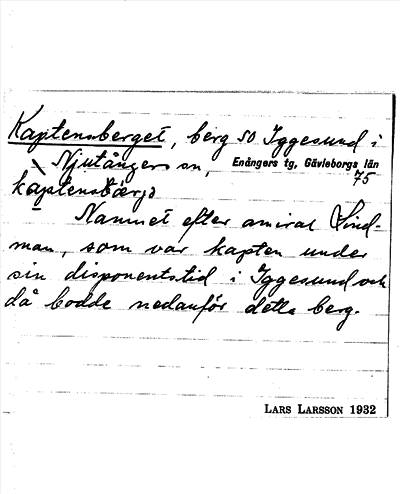 Kaptensberget, berg SO Iggesund i
Njutångers sn, Enångers tg, Gävleborgs län
75
kaptensbärjə
Namnet efter amiral Lind-
man, som var kapten under
sin disponentstid i Iggesund och
då bodde nedanför detta berg.
LARS LARSSON 1932